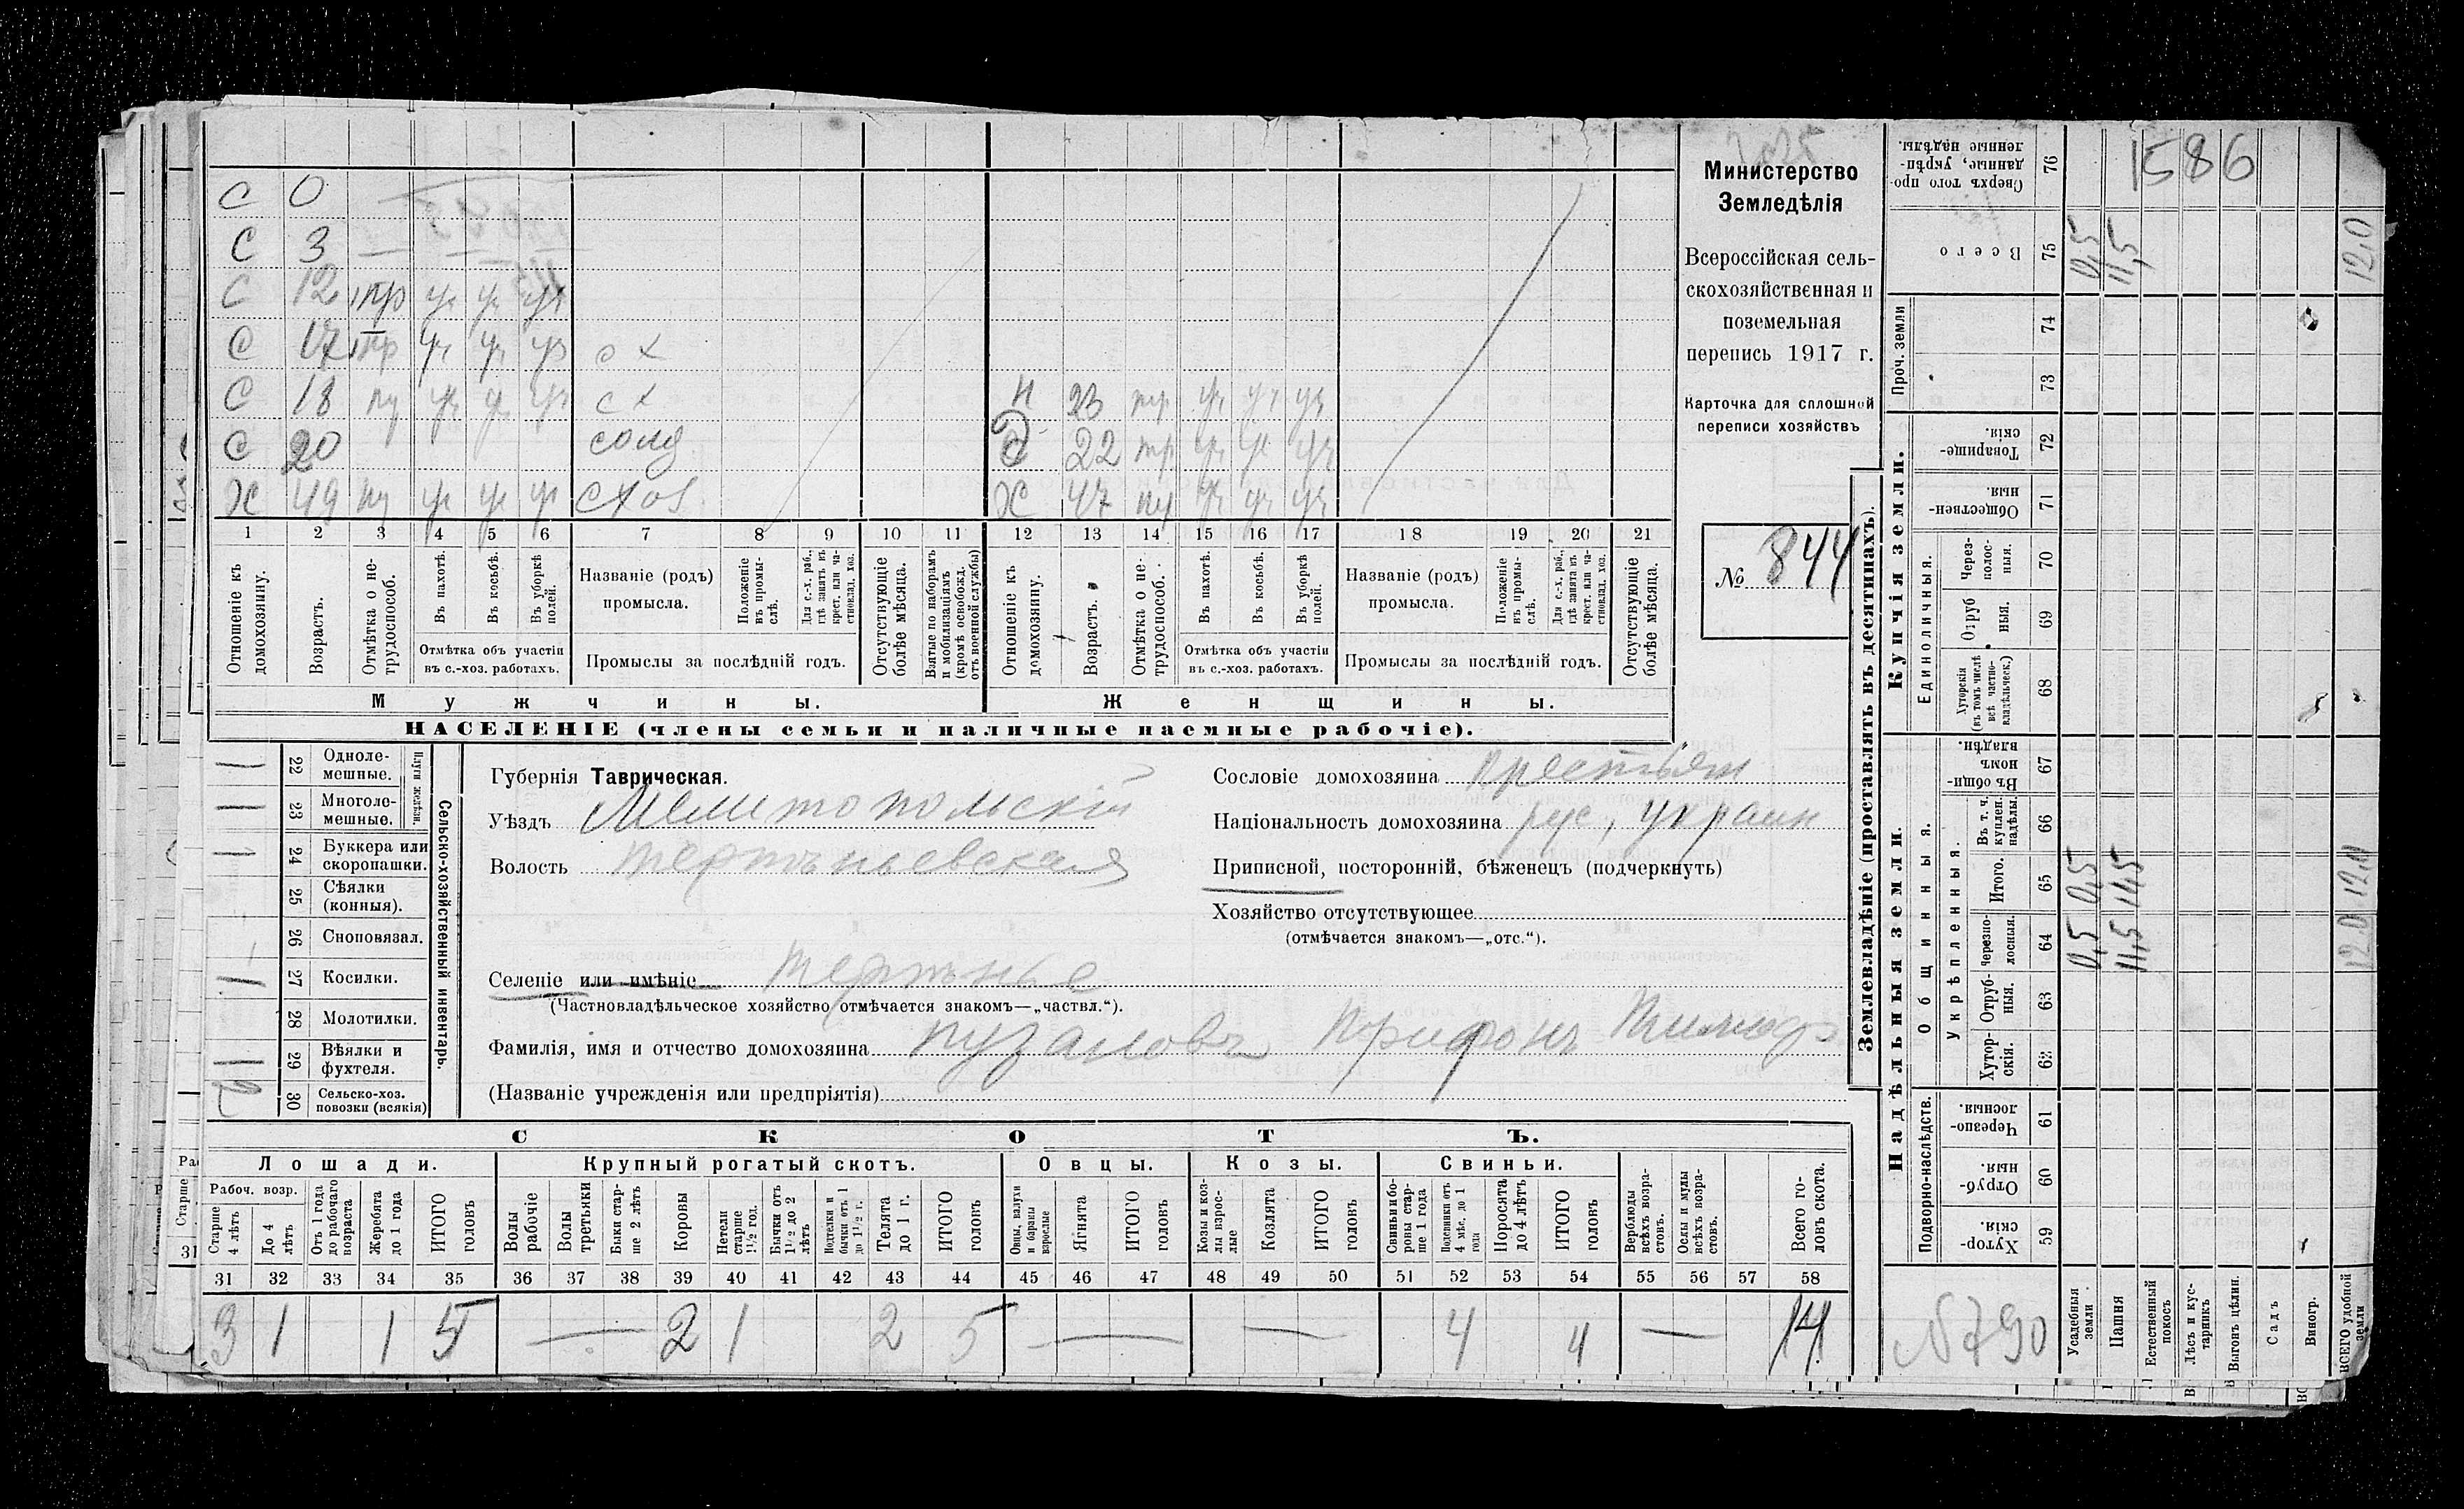 С 0
С 3
С 12 пр уч уч уч
С 17 пр уч уч уч с х
С 18 пу уч уч уч с х
С 20 солд
Х 49 пу уч уч уч схоз
Н 23 пр уч уч уч
22 пр уч уч уч
Х 47 пу уч уч уч
1 2 3 4 5 6 7 8 9 10 11 12 13 14 15 16 17 18 19 20 21
Отношеніе къ домохозяину.
Возрастъ.
Отмѣтка о нетрудоспособ.
Въ пахотѣ.
Въ косьбѣ.
Въ уборкѣ полей.
Отмѣтка объ участіи въ с.-хоз. работахъ.
Названіе (родъ) промысла.
Положеніе въ промыслѣ.
Для с.-х. раб., гдѣ занятъ въ крест. или частновлад. хоз.
Промыслы за послѣдній годъ.
Отсутствующіе болѣе мѣсяца.
Взятые по наборамъ и мобилизаціямъ (кромѣ освобожд. отъ военной службы)
Отношеніе къ домохозяину.
Возрастъ.
Отмѣтка о нетрудоспособ.
Въ пахотѣ.
Въ косьбѣ.
Въ уборкѣ полей.
Отмѣтка объ участіи въ с.-хоз. работахъ.
Названіе (родъ) промысла.
Положеніе въ промыслѣ.
Для с.-х. раб., гдѣ занята въ крест. или частновлад. хоз.
Промыслы за послѣдній годъ.
Отсутствующіе болѣе мѣсяца.
Мужчины.
Женщины.
НАСЕЛЕНІЕ (члены семьи и наличные наемные рабочіе).
Министерство
Земледѣлія
Всероссійская сель-
скохозяйственная и
поземельная
перепись 1917 г.
Карточка для сплошной
переписи хозяйствъ
№ 844
Сельско-хозяйственный инвентарь.
Плуги желѣзн.
1 22 Однолемешные.
1 23 Многолемешные.
1 24 Буккера или скоропашки.
25 Сѣялки (конныя).
26 Сноповязал.
1 27 Косилки.
28 Молотилки.
1 29 Вѣялки и фухтеля.
30 Сельско-хоз. повозки (всякія)
Губернія Таврическая.
Уѣздъ Мелитопольскій
Волость Терпѣньевская
Сословіе домохозяина крестьян
Національность домохозяина рус, украин
Приписной, посторонній, бѣженецъ (подчеркнуть)
Хозяйство отсутствующее
(отмѣчается знакомъ—„отс.“).
Селеніе или имѣніе Терпѣнье
(Частновладѣльческое хозяйство отмѣчается знакомъ—„частвл.“).
Фамилія, имя и отчество домохозяина Пузановъ Трифонъ Тимоф
(Названіе учрежденія или предпріятія)
СКОТЪ.
Лошади. Крупный рогатый скотъ. Овцы. Козы. Свиньи.
Рабоч. возр.
Старше 4 лѣтъ
До 4 лѣтъ
Отъ 1 года до рабочаго возраста
Жеребята до 1 года
ИТОГО головъ
Волы рабочіе
Волы третьяки
Быки старше 2 лѣтъ
Коровы
Нетели старше 1½ год.
Бычки отъ 1½ до 2 лѣтъ
Подтелки и бычки отъ 1 до 1½ г.
Телята до 1 г.
ИТОГО головъ
Овцы, валухи и бараны взрослые
Ягнята
ИТОГО головъ
Козы и козлы взрослые
Козлята
ИТОГО головъ
Свиньи и боровы старше 1 года
Подсвинки отъ 4 мѣс. до 1 года
Поросята до 4 лѣтъ
ИТОГО головъ
Верблюды всѣхъ возрастовъ.
Ослы и мулы всѣхъ возрастовъ.
Всего головъ скота.
31 32 33 34 35 36 37 38 39 40 41 42 43 44 45 46 47 48 49 50 51 52 53 54 55 56 57 58
3 1 1 5 — 2 1 2 5 — — 4 4 — 14
Землевладѣніе (проставлять въ десятинахъ).
Купчія земли.
Надѣльныя земли.
Сверхъ того проданные, укрѣпленные надѣлы. 76
Всего 75
Проч. земли 74 73
Товарищескія. 72
Общественныя. 71
Единоличныя.
Черезполосныя. 70
Отрубныя. 69
Хуторскія (въ томъ числѣ всѣ частновладѣльческ.) 68
Въ общинномъ владѣн. 67
Общинныя.
Укрѣпленныя.
Въ т. ч. куплен. надѣлы. 66
Итого. 65
Черезполосныя. 64
Отрубныя. 63
Хуторскія. 62
Подворно-наслѣдств.
Черезполосныя. 61
Отрубныя. 60
Хуторскія. 59
Усадебныя земли 0,5 0,5 0,5
Пашня 11,5 11,5 11,5
Естественный покосъ
Лѣсъ и кустарникъ
Выгонъ цѣлин.
Садъ
Виногр.
ВСЕГО удобной земли 12.0 12.0 12.0
1586
№790